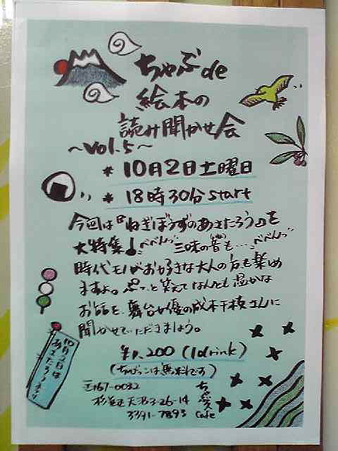 ちゃぶ de
絵本の
読み聞かせ会
〜vol.5〜
* 10月2日土曜日
* 18時30分 start
今回は『ねぎぼうずのあさたろう』を
大特集！べべんっ 三味の音も…べべんっ
時代モノがお好きな大人の方も楽め
ますよ。 と笑えてなんとも温かな
お話を、舞台女優の 千枝さんに
聞かせていただきましょう。
¥1,200 (1drink)
(ちゃぶりんは無料です)
〒167-0032
杉並区天沼3-26-14
3391-7893
cafe
10月2日は